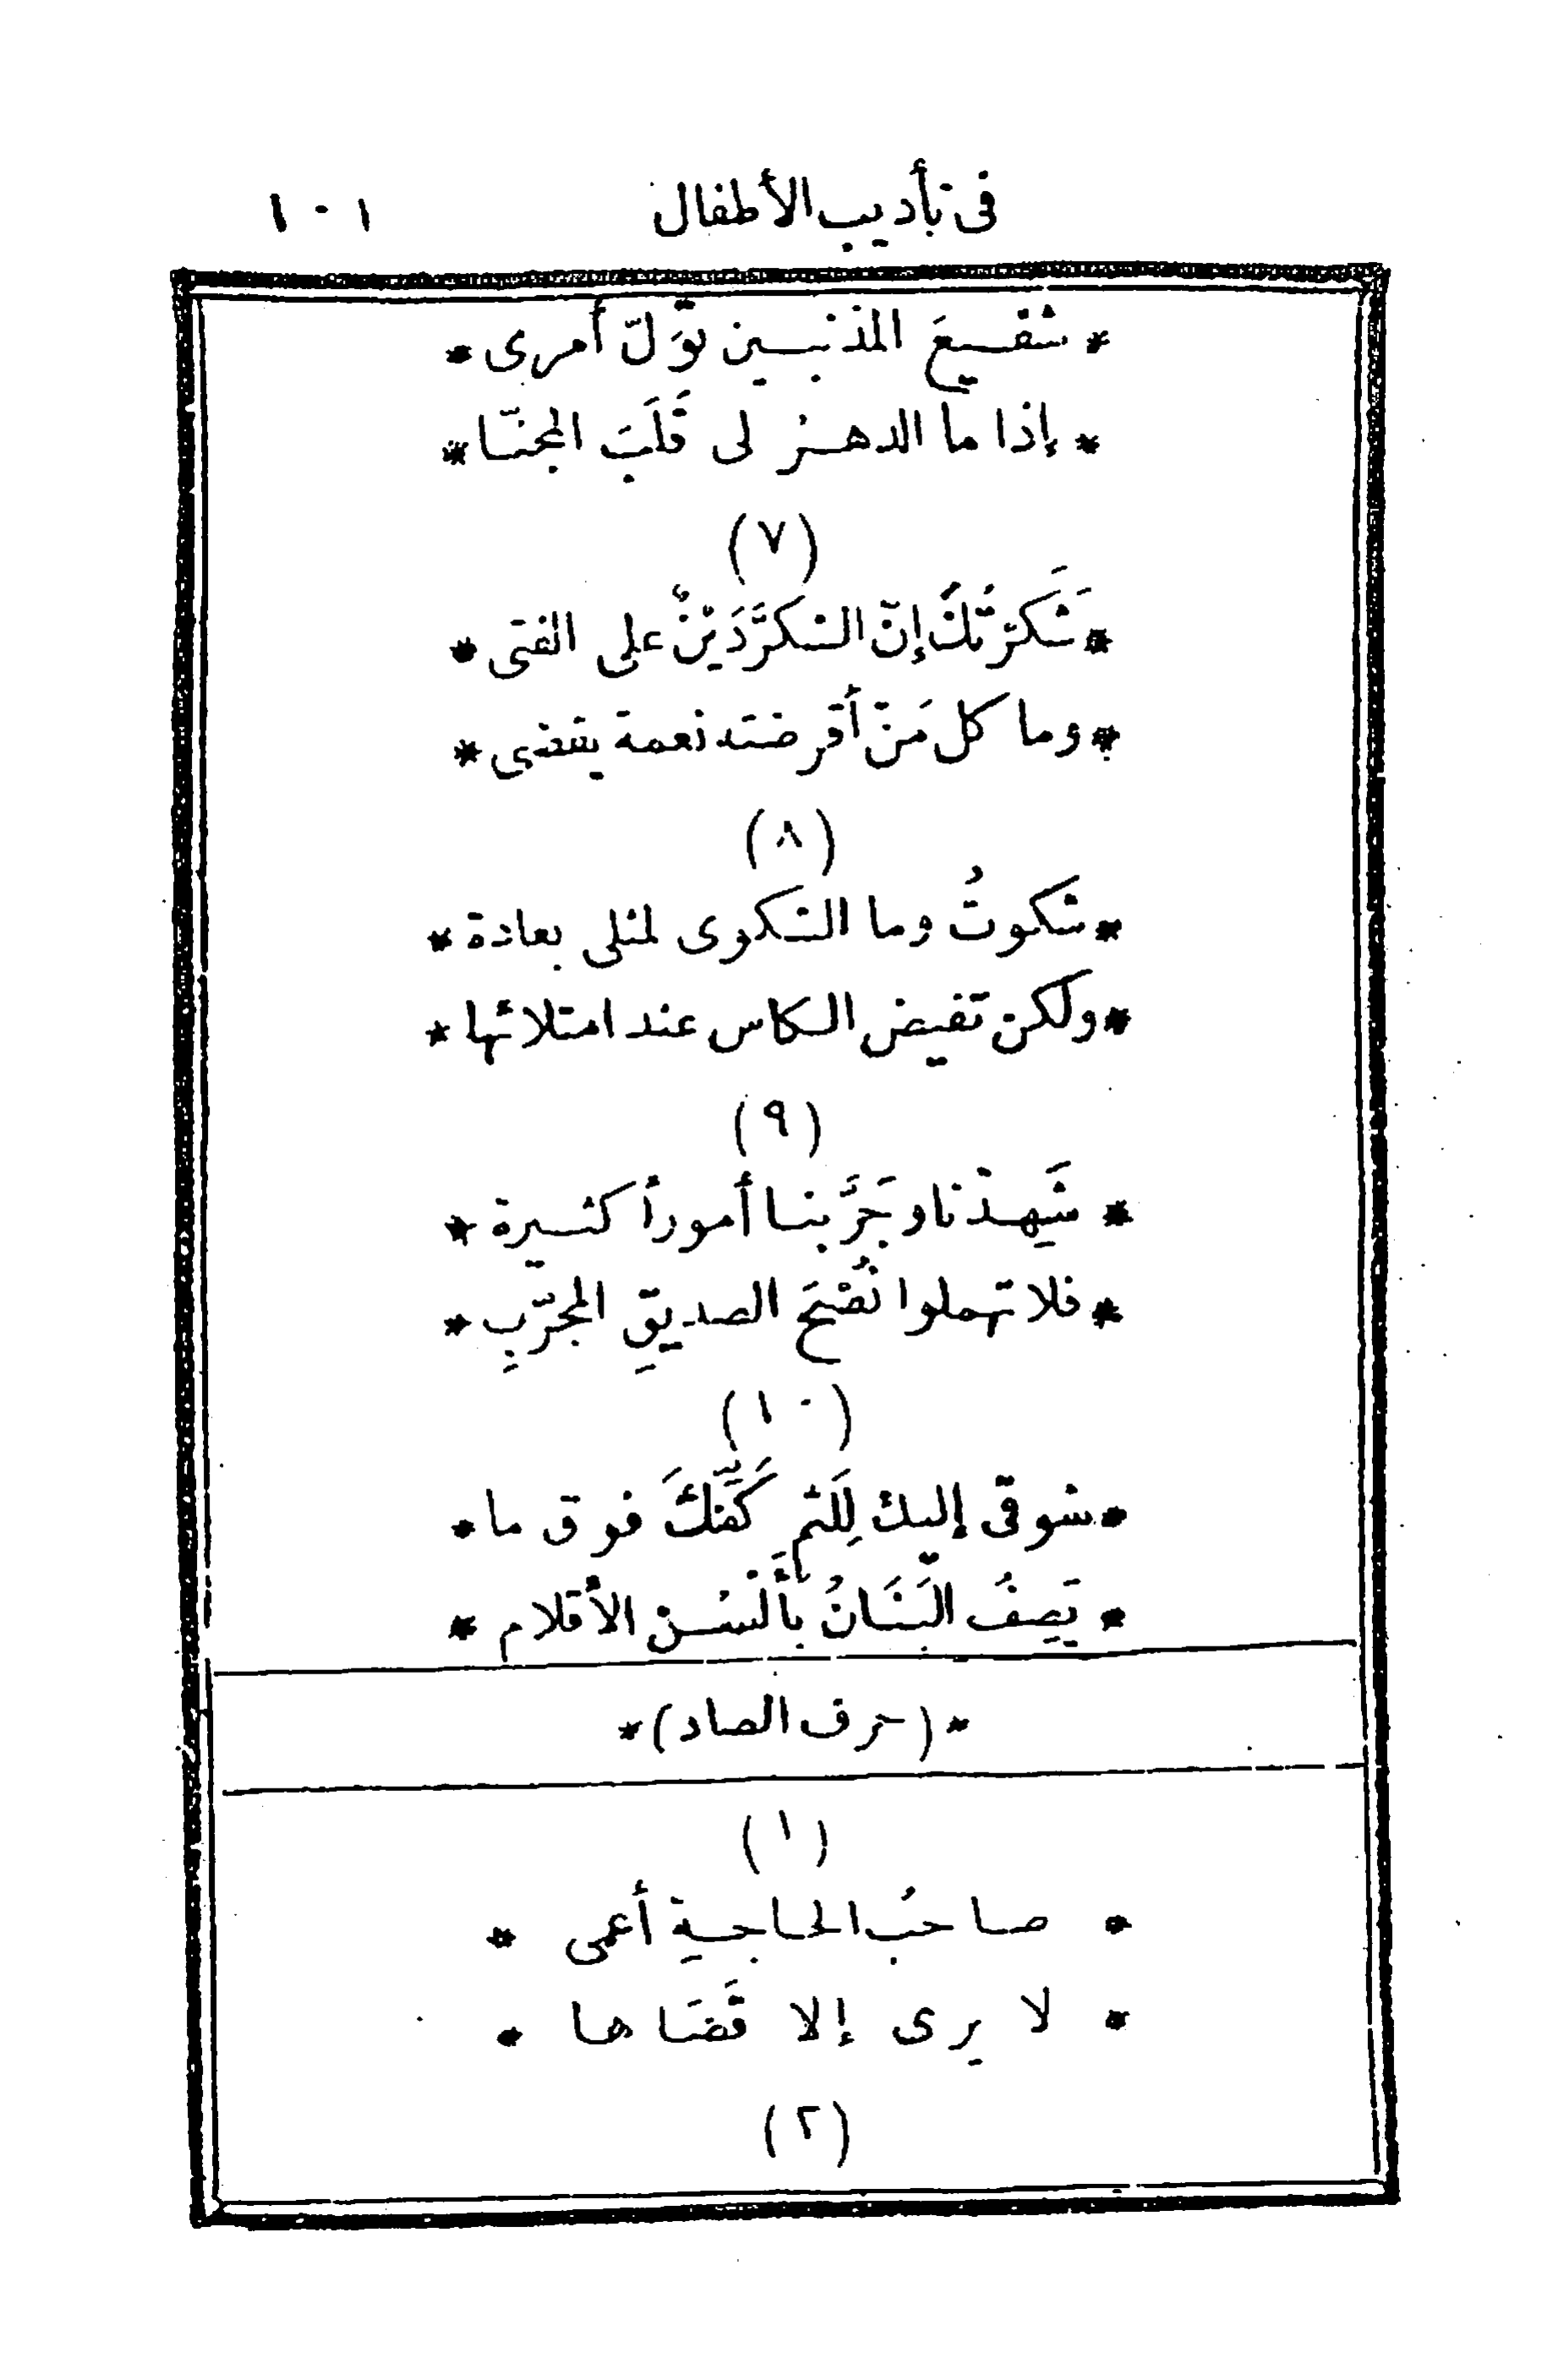 فى تأديب الأطفال ١٠١
* شفيعَ المذنبين تَوَلّ أمرى *
* إذا ما الدهرُ لى قَلَبَ المجنّا *
(٧)
* شَكَرْتُكَ إنّ الشكرَ دَيْنٌ على الفتى *
* وما كل مَنْ أقرضته نعمة يقضى *
(٨)
* شكوتُ وما الشكوى لمثلى بعادة *
* ولكن تفيض الكاس عند امتلائها *
(٩)
* شَهِدْنا وجَرَّبنا أموراً كثيرة *
* فلا تهملوا نُصْحَ الصديقِ المجرّبِ *
(١٠)
* شوقى إليك لِلَثْمِ كَفّكَ فوق ما *
* يَصِفُ البَنَانُ بأَلْسُن الأقلام *
* (حرف الصاد) *
(١)
* صاحبُ الحاجة أعمى *
* لا يرى إلا قَضَاها *
(٢)